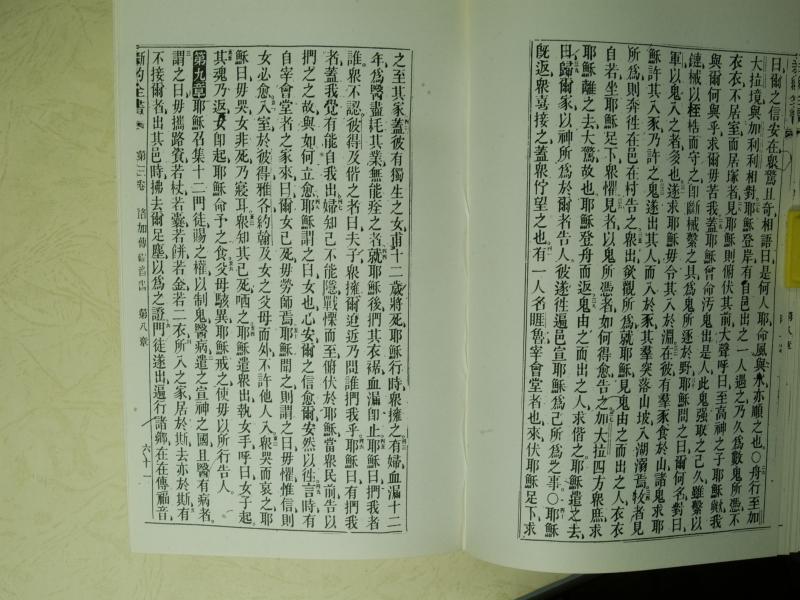 日爾之信安在衆驚且奇相語曰是何人耶命風與水亦順之也〇舟行至加
大拉境與加利利相對耶穌登岸有自邑出之一人遇之乃久爲數鬼所憑不
衣衣不居室而居塚者見耶穌則俯伏其前大聲呼曰至高神之子耶穌歟我
與爾何與乎求爾毋苦我蓋耶穌曾命汚鬼出是人此鬼强取之已久雖繫以
鏈械以桎梏而守之卽斷械繫之具爲鬼所逐於野耶穌問之曰爾何名對曰
軍以鬼入之者多也遂求耶穌毋令其入於淵在彼有羣豕食於山諸鬼求耶
穌許其入豕乃許之鬼遂出其人而入於豕其羣突落山坡入湖溺焉牧者見
所爲則奔往在邑在村告之衆出欲觀所爲就耶穌見鬼由之而出之人衣衣
自若坐耶穌足下衆懼見者以鬼所憑者如何得愈告之加大拉四方衆庶求
耶穌離之去大驚故也耶穌登舟而返鬼由之而出之人求偕之耶穌遣之去
曰歸爾家以神所爲於爾者告人彼遂往遍邑宣耶穌爲己所爲之事〇耶穌
旣返衆喜接之蓋衆佇望之也有一人名睚魯宰會堂者也來伏耶穌足下求
之至其家蓋彼有獨生之女甫十二歲將死耶穌行時衆擁之有婦血漏十二
年爲醫盡耗其業無能痊之者就耶穌後捫其衣裾血漏卽止耶穌曰捫我者
誰衆不認彼得及偕之者曰夫子衆擁爾迫近乃問誰捫我乎耶穌曰有捫我
者蓋我覺有能自我出婦知己不能隱戰慄而至俯伏於耶穌當衆民前告以
捫之之故與如何立愈耶穌謂之曰女也心安爾之信愈爾安然以往言時有
自宰會堂者之家來曰爾女已死毋勞師焉耶穌聞之則謂之曰毋懼惟信則
女必愈入室於彼得雅各約翰及女之父母而外不許他人入衆哭而哀之耶
穌曰毋哭女非死乃寢耳衆知其已死哂之耶穌遣衆出執女手呼曰女子起
其魂乃返女卽起耶穌命予之食父母駭異耶穌戒之使毋以所行告人
第九章耶穌召集十二門徒賜之權以制鬼醫病遣之宣神之國且醫有病者
謂之曰毋攜路資若杖若囊若餅若金若二衣所入之家居於斯去亦於斯有
不接爾者出其邑時拂去爾足塵以爲之證門徒遂出遍行諸鄉在在傳福音
新約全書 第三卷 路加傳福音書 第八章 六十一